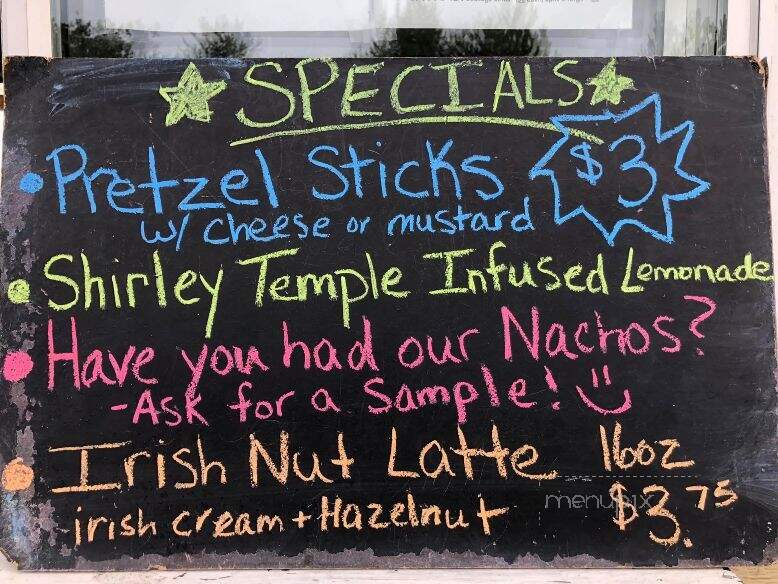 SPECIALS
• Pretzel Sticks $3
w/ cheese or mustard
• Shirley Temple Infused Lemonade
• Have you had our Nachos?
-Ask for a Sample!
• Irish Nut Latte 16oz
irish cream + Hazelnut $3.75
menupix